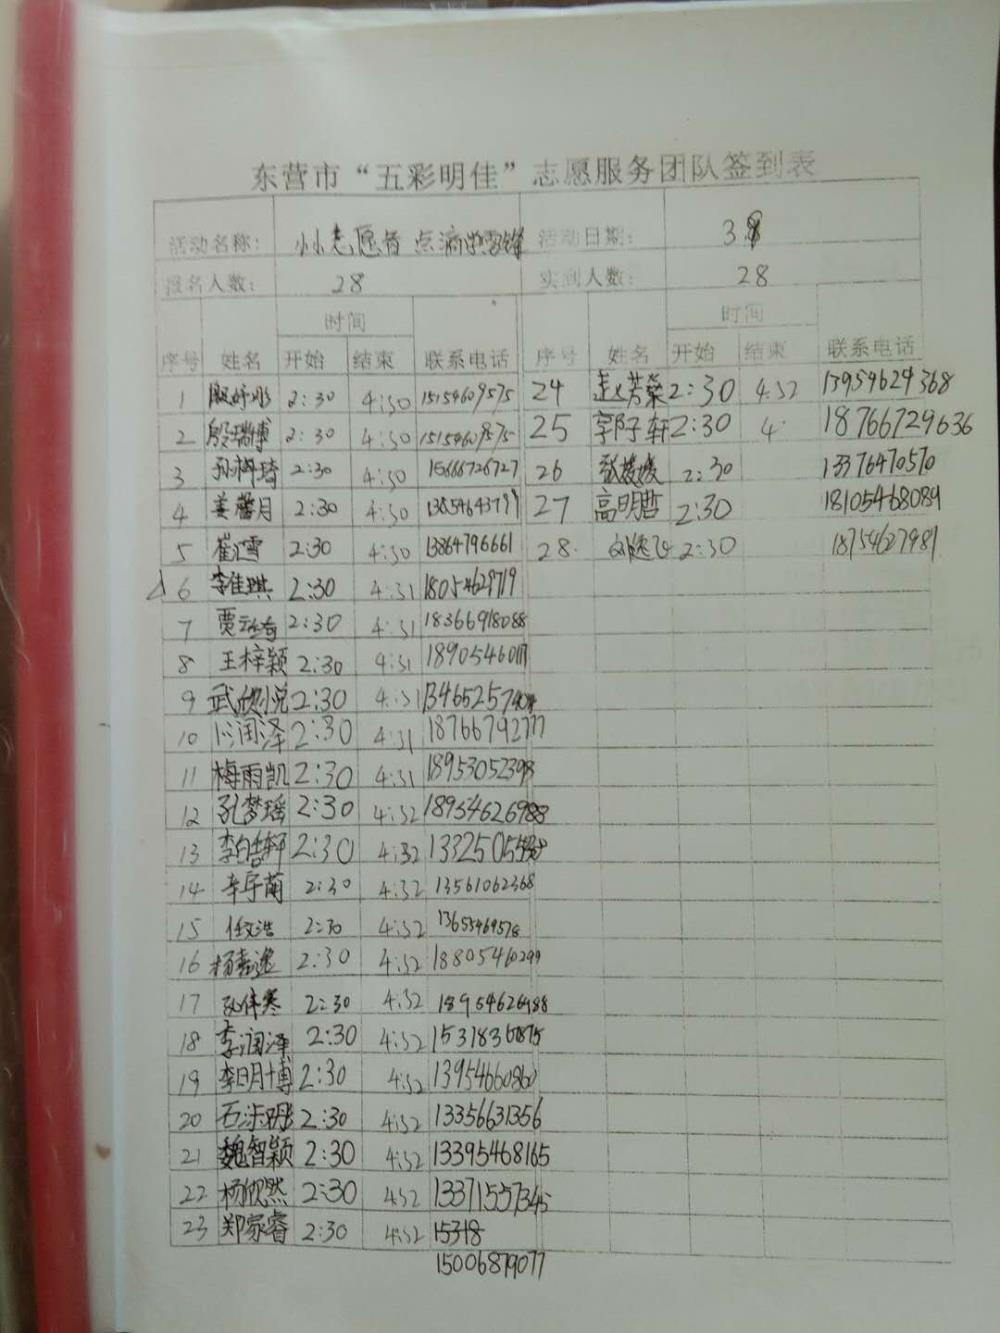 东营市“五彩明佳”志愿服务团队签到表
活动名称： 小小志愿者 点滴学雷锋 活动日期： 3.8
报名人数： 28 实到人数： 28
时间 时间
序号 姓名 开始 结束 联系电话 序号 姓名 开始 结束 联系电话
1 2:30 4:30 15154609575 24 赵芳荣 2:30 4:32 13954624368
2 殷瑞博 2:30 4:30 15154609575 25 郭子轩 2:30 4: 18766729636
3 孙梓琦 2:30 4:30 15666726727 26 张媛媛 2:30 13376470570
4 姜馨月 2:30 4:30 27 高明哲 2:30 18105468089
5 崔雪 2:30 4:30 13864796661 28. 2:30 18754627981
6 李佳琪 2:30 4:31 18054629719
7 贾 2:30 4:31 18366918088
8 王梓颖 2:30 4:31
9 武欣悦 2:30 4:31
10 润泽 2:30 4:31 18766792777
11 梅雨凯 2:30 4:31 18953052398
12 孔梦瑶 2:30 4:32 18954626988
13 李皓轩 2:30 4:32
14 辛宇菡 2:30 4:32 13561062368
15 任文浩 2:30 4:32
16 杨嘉逸 2:30 4:32 18805460299
17 孔伟寒 2:30 4:32 18954626988
18 李润泽 2:30 4:32
19 李明博 2:30 4:32 13954660860
20 石 2:30 4:32 13356631356
21 魏智颖 2:30 4:32 13395468165
22 杨欣然 2:30 4:32 13371557345
23 郑家睿 2:30 4:32 15318
15006879077